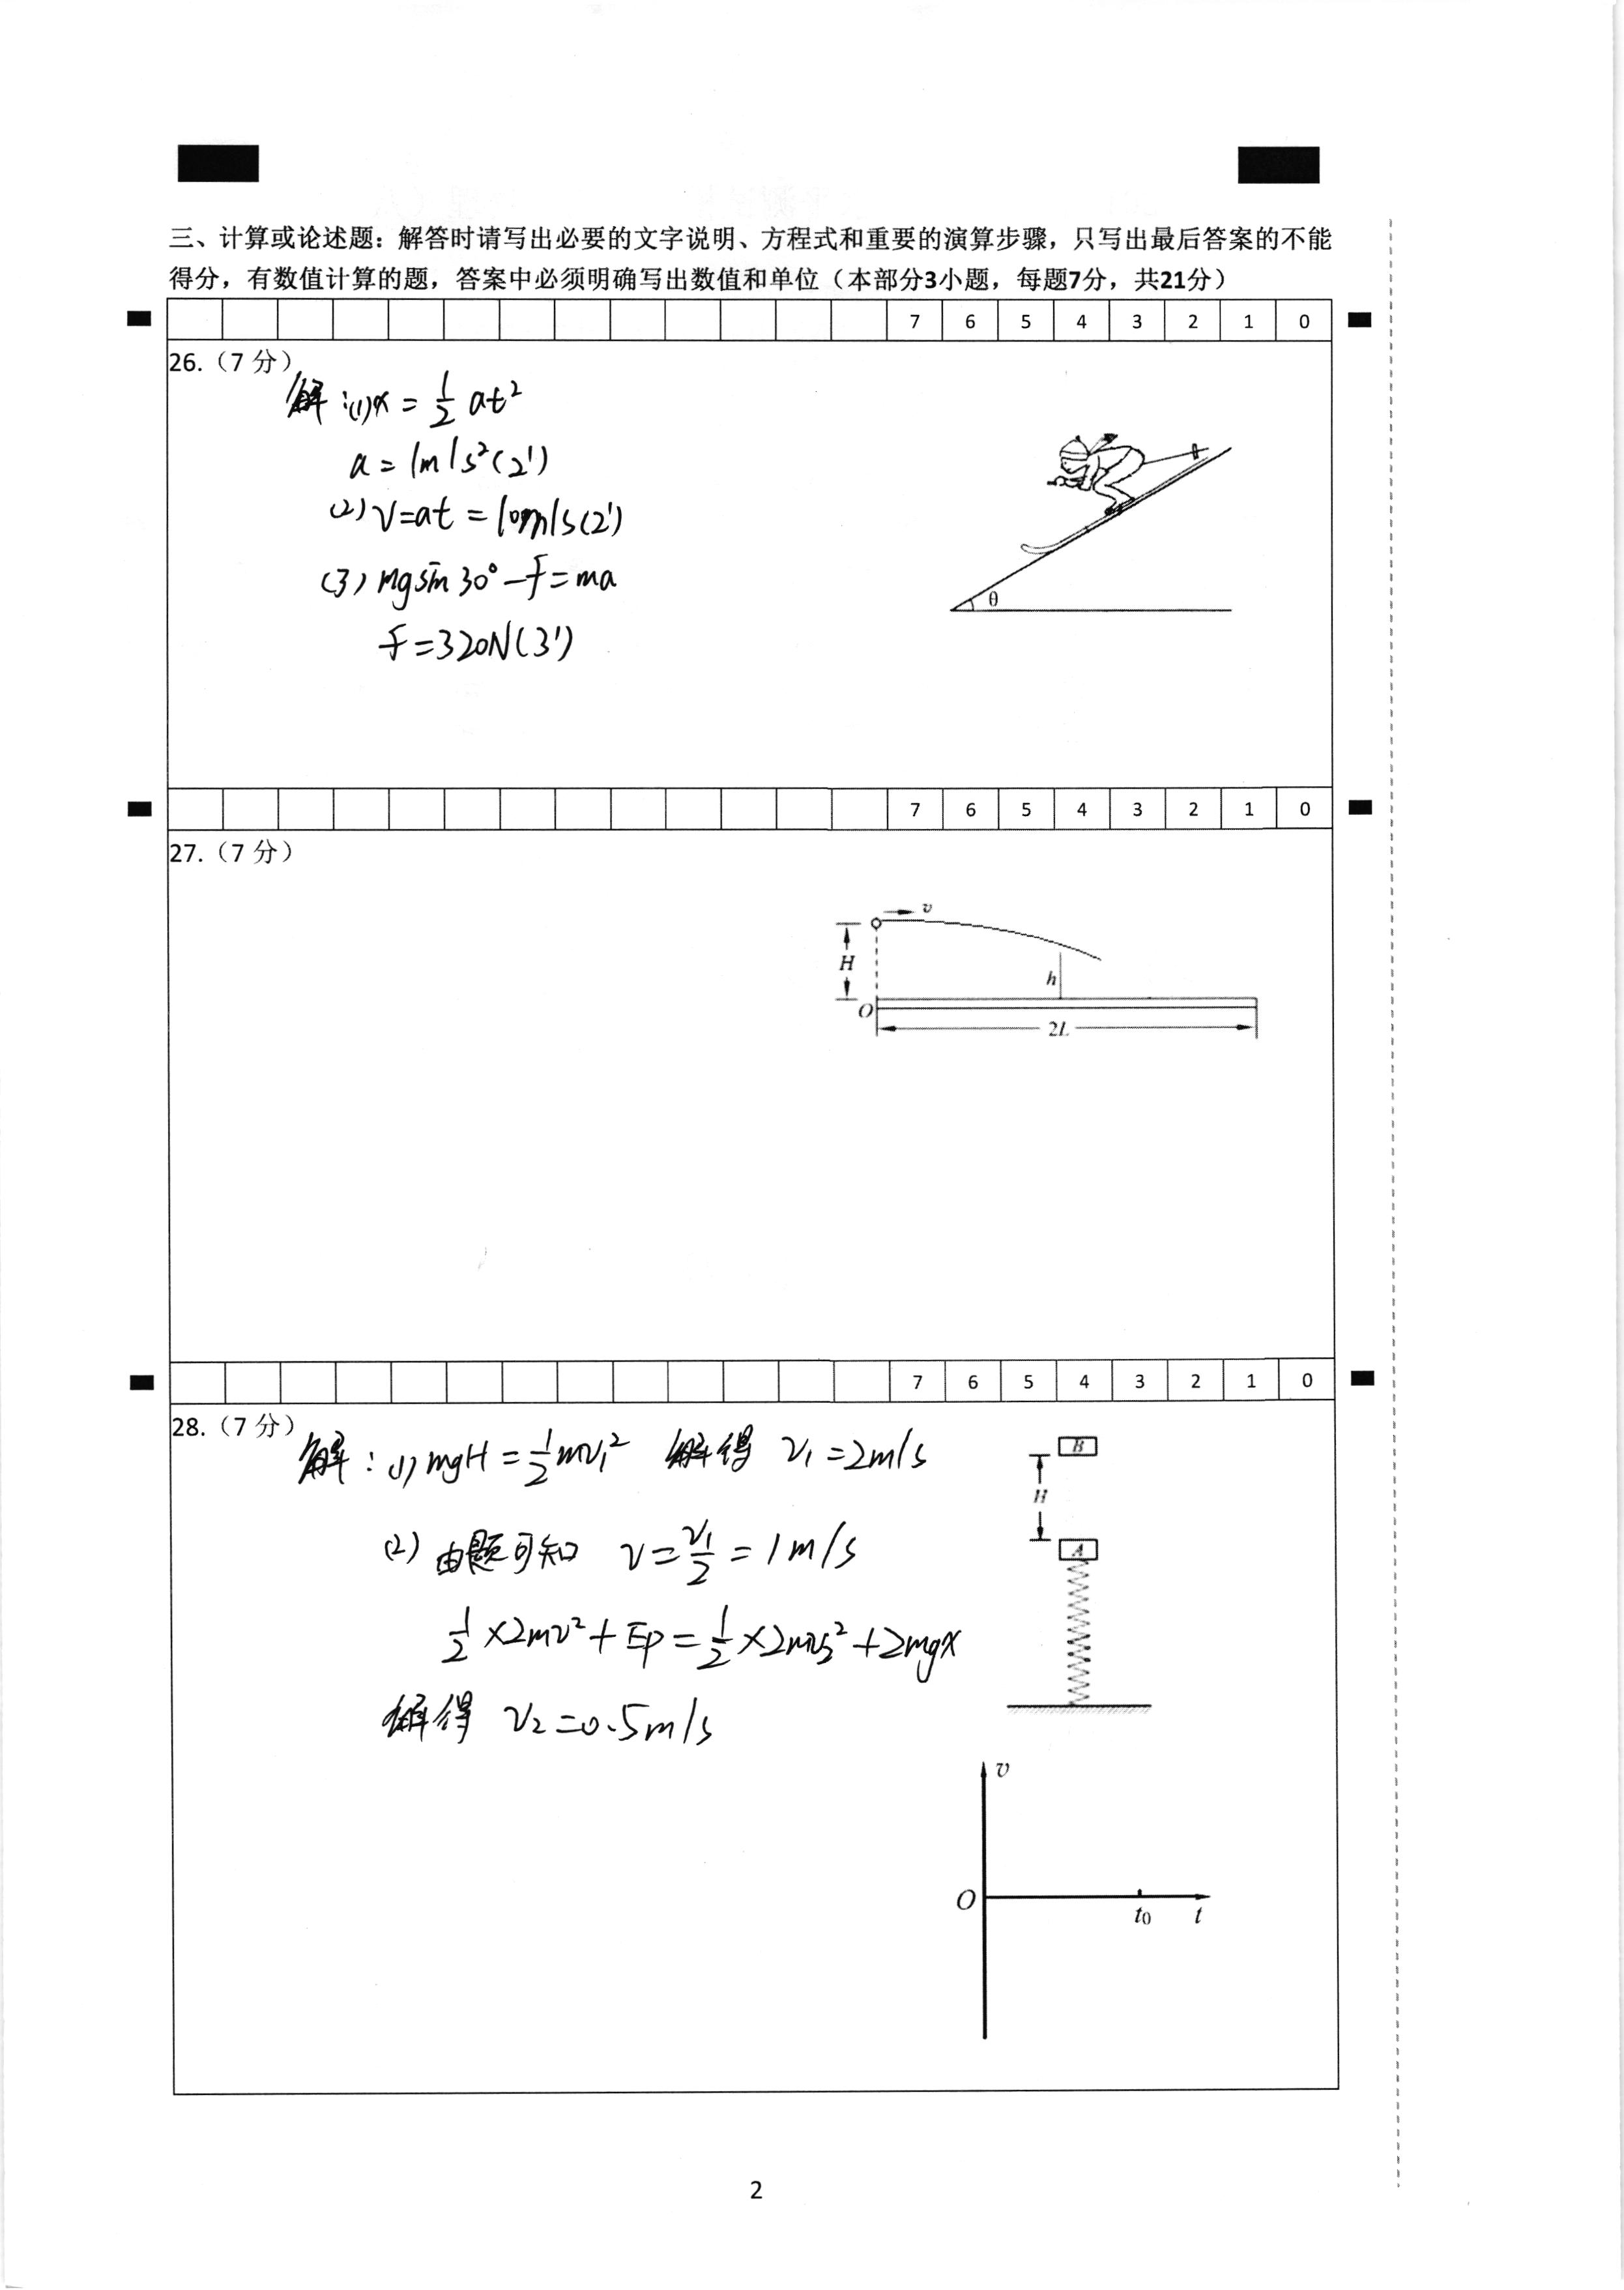 三、计算或论述题：解答时请写出必要的文字说明、方程式和重要的演算步骤，只写出最后答案的不能
得分，有数值计算的题，答案中必须明确写出数值和单位（本部分3小题，每题7分，共21分）
7 6 5 4 3 2 1 0
26.（7 分）
解：(1)x = 1/2 at²
a = 1m/s²(2')
(2) v=at = 10m/s(2')
(3) mgsin30°-f=ma
f=320N(3')
θ
7 6 5 4 3 2 1 0
27.（7 分）
v
H
h
O
2L
7 6 5 4 3 2 1 0
28.（7 分）
解：(1) mgH = 1/2 mv₁² 解得 v₁=2m/s
B
H
(2) 由题可知 v = v₁/2 = 1m/s
A
1/2 ×2mv² + Ep = 1/2 ×2mv₂² + 2mgx
解得 v₂=0.5m/s
v
O
t₀ t
2